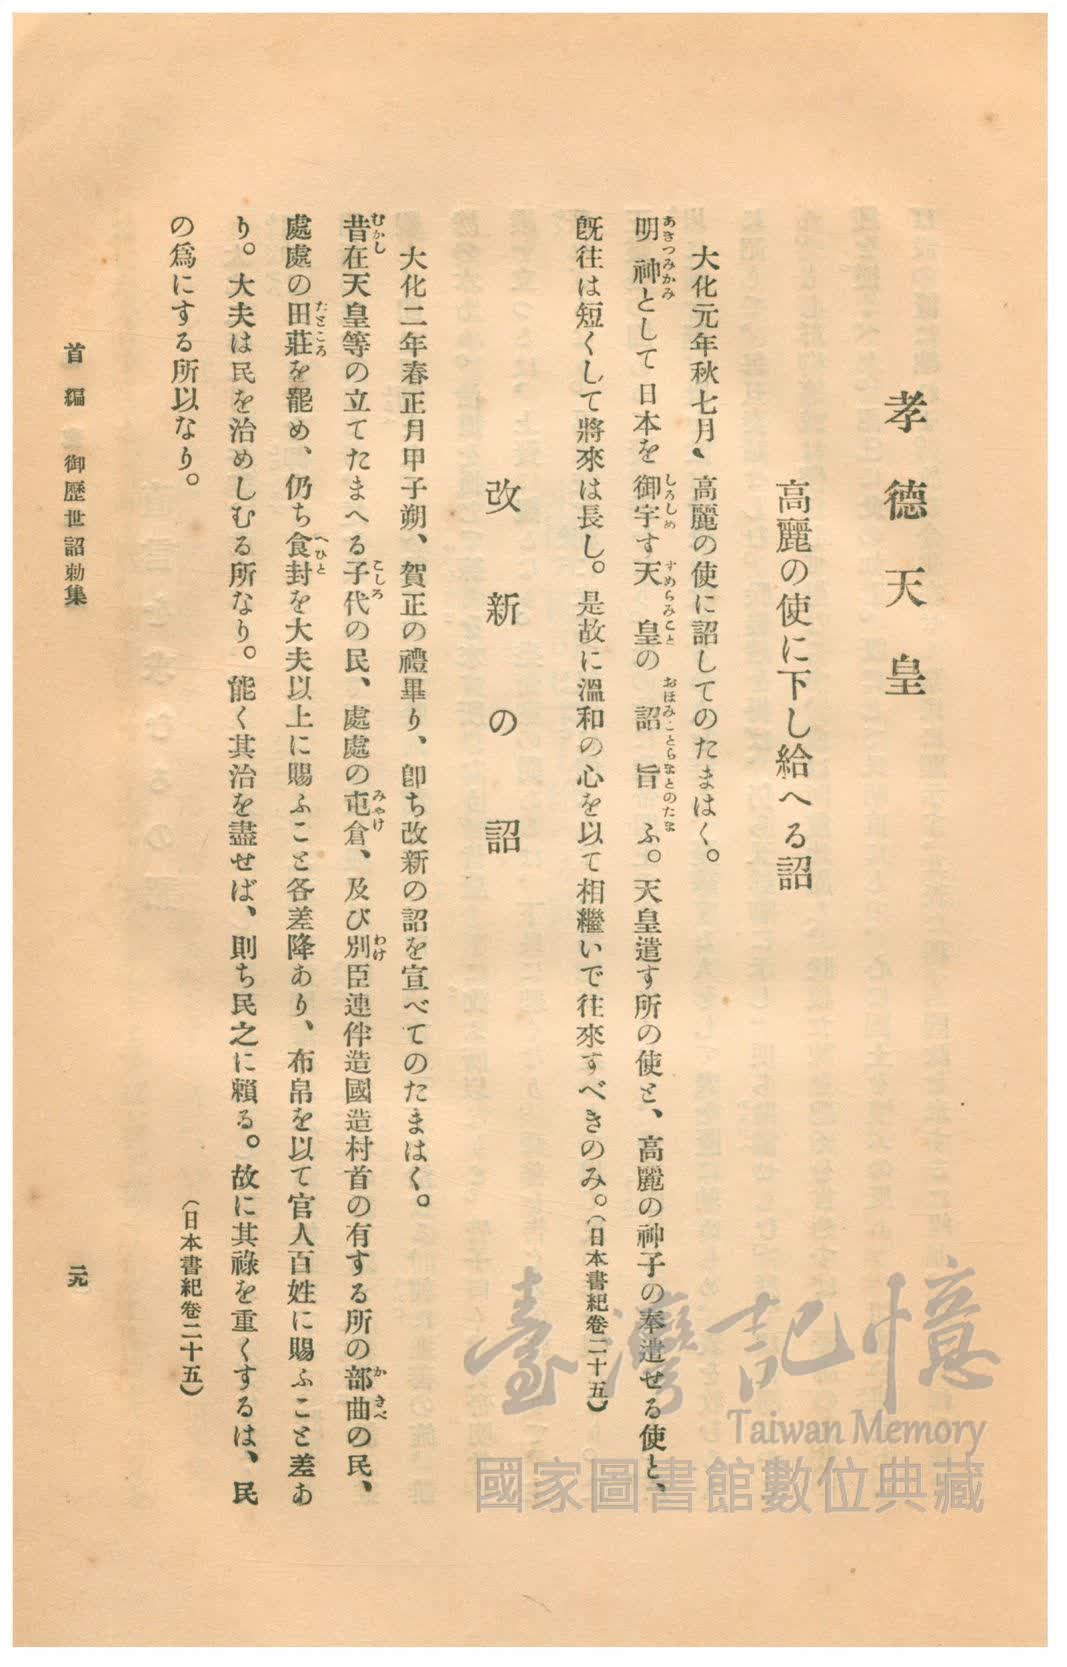 孝德天皇
高麗の使に下し給へる詔
大化元年秋七月、高麗の使に詔してのたまはく。
明神として日本を御宇す天皇の詔旨ふ。天皇遣す所の使と、高麗の神子の奉遣せる使と、
旣往は短くして將來は長し。是故に溫和の心を以て相繼いで往來すべきのみ。(日本書紀卷二十五)
改新の詔
大化二年春正月甲子朔、賀正の禮畢り、卽ち改新の詔を宣べてのたまはく。
昔在天皇等の立てたまへる子代の民、處處の屯倉、及び別臣連伴造國造村首の有する所の部曲の民、
處處の田莊を罷め、仍ち食封を大夫以上に賜ふこと各差降あり、布帛を以て官人百姓に賜ふこと差あ
り。大夫は民を治めしむる所なり。能く其治を盡せば、則ち民之に賴る。故に其祿を重くするは、民
の爲にする所以なり。
(日本書紀卷二十五)
首編 御歷世詔勅集
臺灣記憶
Taiwan Memory
國家圖書館數位典藏